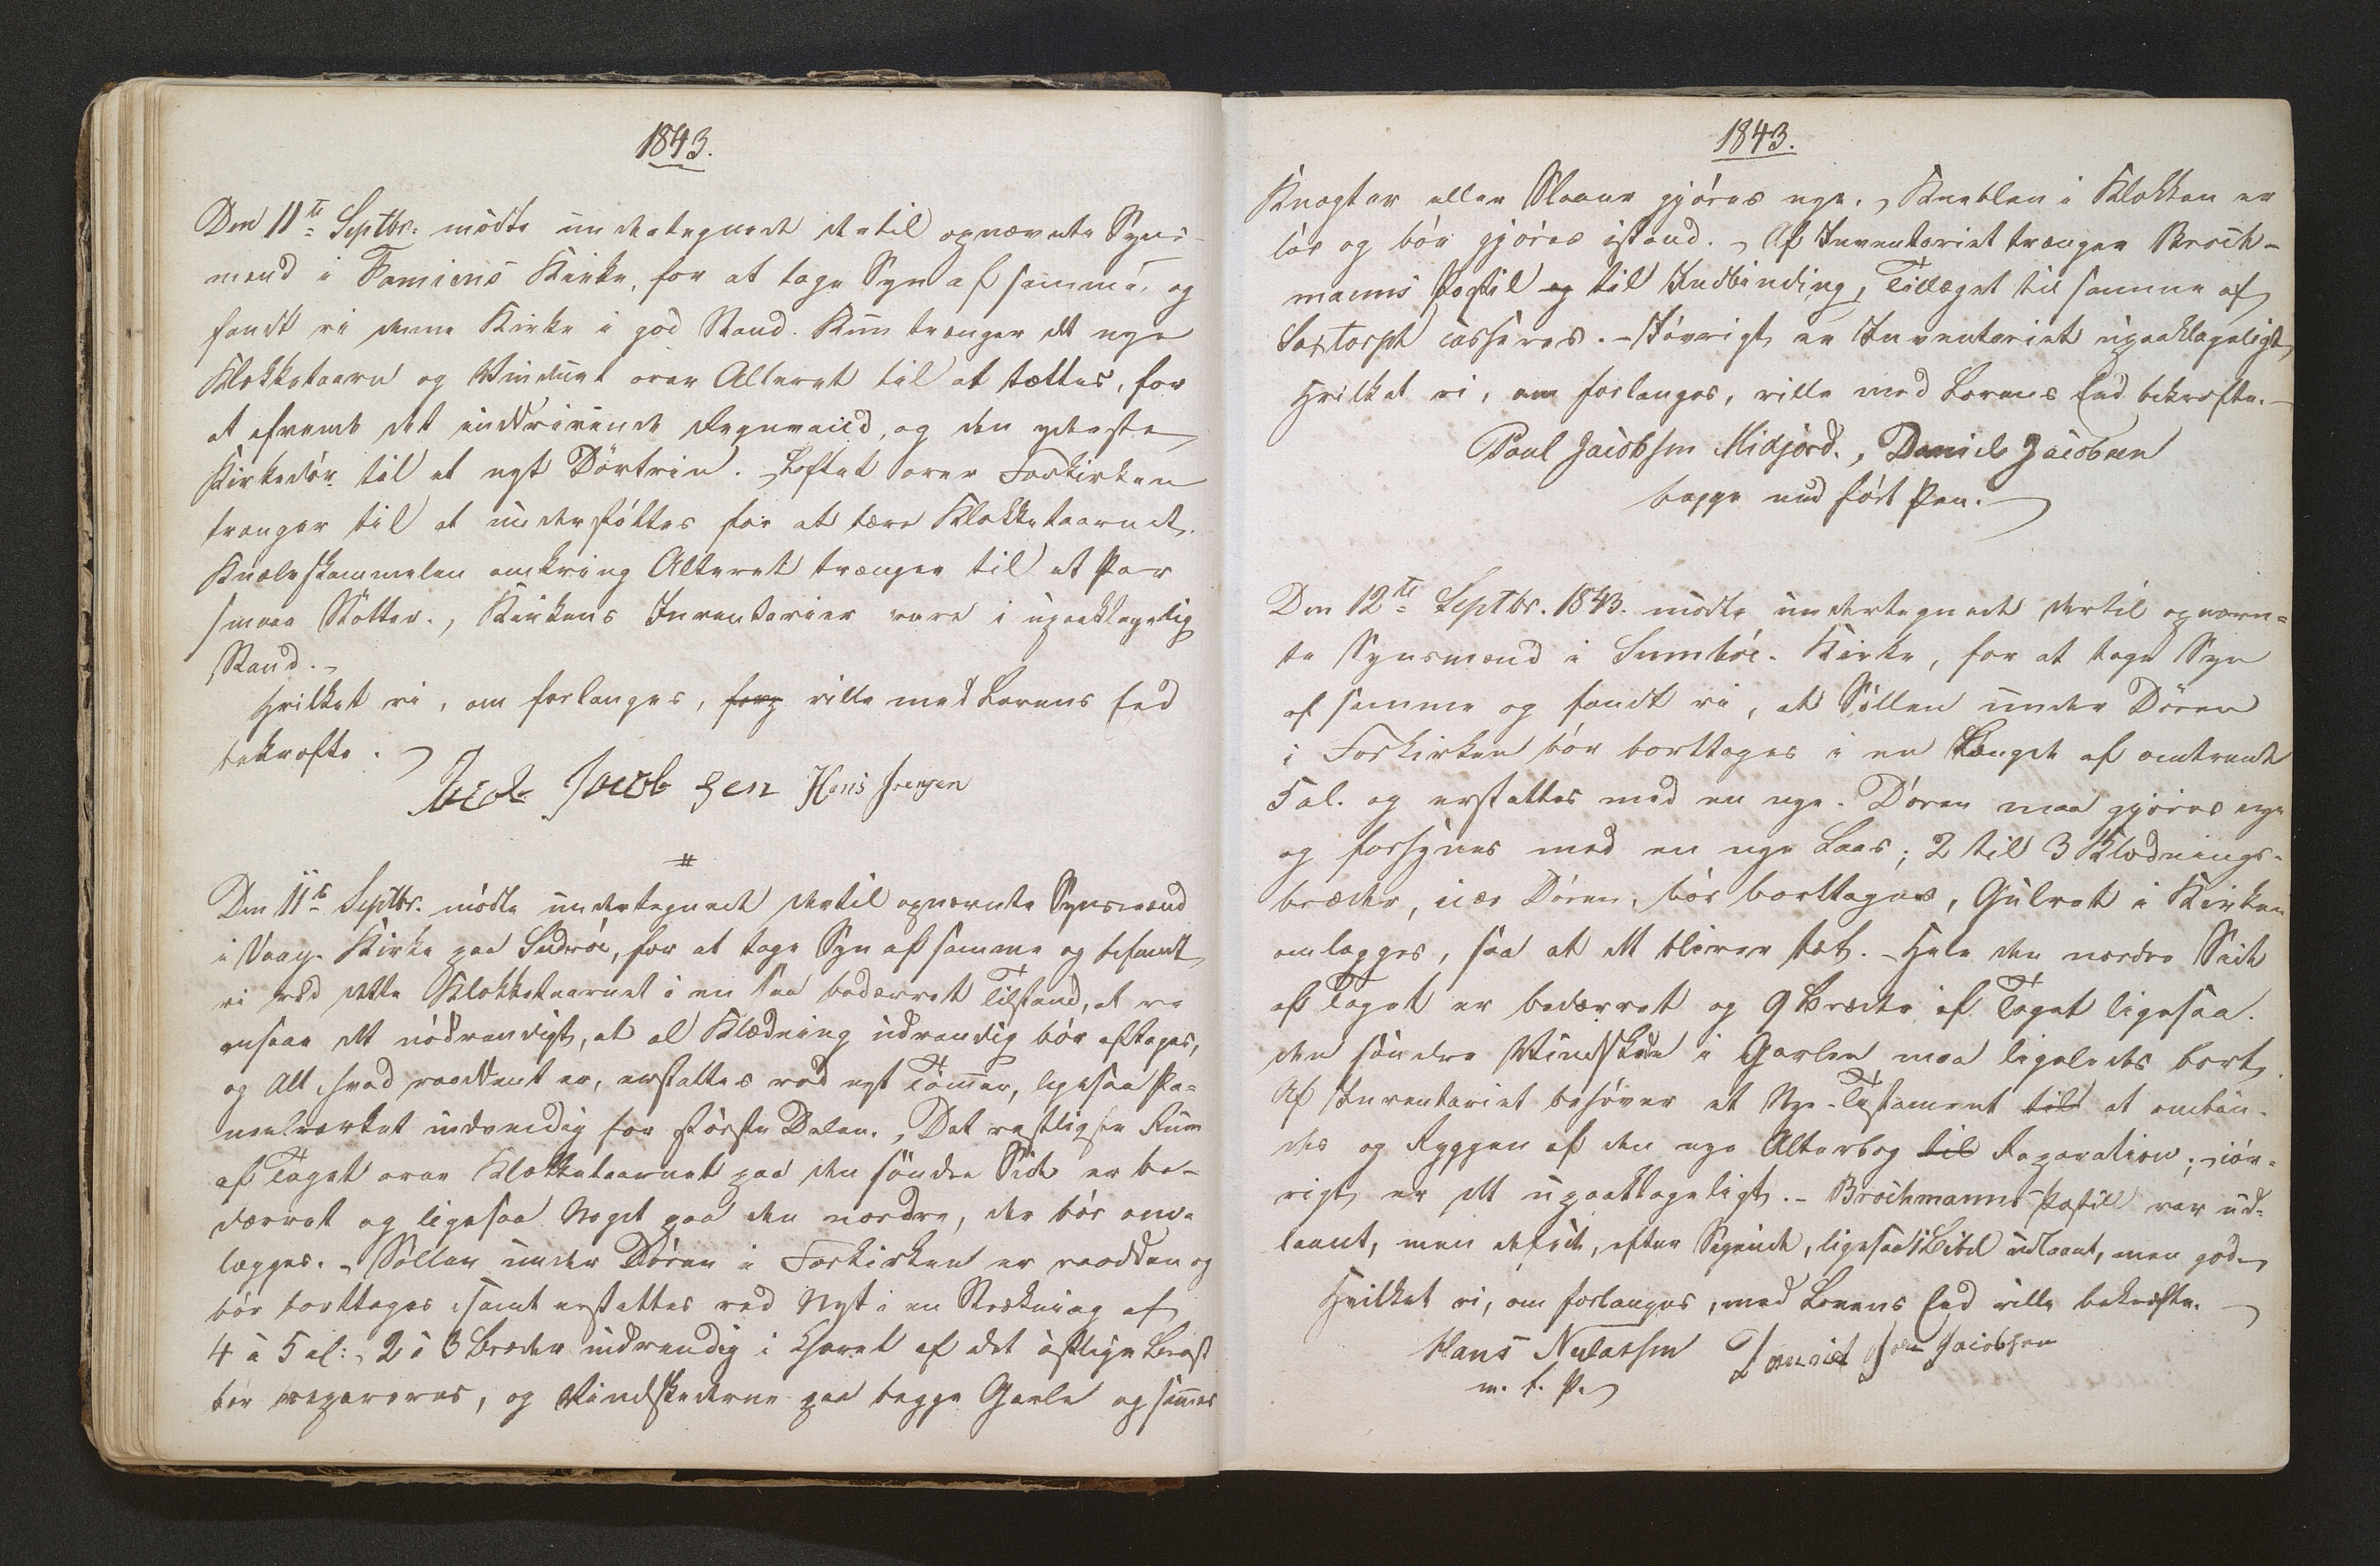 1843.
Den 11te Septbr. mödte undertegnede dertil opnævnte Syns-
mænd i Famiens Kirke, for at tage Syn af samme, og
fandt vi denne Kirke i god Stand. Kun trænger det nye
Klokketaarn og Vinduet over Alteret til at tættes, for
at afvende det inddrivende Regnvand, og den yderste
Kirkedör til et nyt Dörtrin. Loftet over Forkirken
trænger til at understöttes for at bære Klokketaarnet.
Knæleskammelen omkring Alteret trænger til et Par
smaa Stötter., Kirkens Inventarier vare i upaaklagelig
Stand.
Hvilket vi, om forlanges, ville med Lovens Eed
bekræfte.
Jacob Jacobsen Hans Jensen
Den 11te Septbr. mödte undertegnede dertil opnævnte Synsmænd
i Vaags Kirke paa Suderöe, for at tage Syn af samme og befandt
vi ved dette Klokketaarnet i en saa bedærvet Tilstand, at vi
ansaae det nödvendigt, at al Klædning udvendig bör aftages,
og Alt, hvad raaddent er, erstattes ved nyt Tömmer, ligesaa Pa-
neelværket indvendig for störste Delen., Det vestligste Rum
af Taget over Klokketaarnet paa den söndre Side er be-
dærvet og ligesaa Noget paa den nordre, der bör om-
lægges. - Söllen under Dören i Forkirken er raadden og
bör borttages samt erstattes ved Nyt i en Strækning af
4 à 5 al: 2 à 3 Bræder indvendig i Choret af det östlige Brøst
bör repareres, og Vindskederne paa begge Gavle og sammes
1843.
Knægter eller Skaane gjöres nye. Kneblen i Klokken er
lös og bör gjöres istand. Af Inventariet trænger Broch-
manns Postil og til Indbinding, Tillæget til samme af
Sartorph casseres. - Iövrigt er Inventariet upaaklageligt,
Hvilket vi, om forlanges, ville med Lovens Eed bekræfte.
Poul Jacobsen Midjord., Daniel Jacobsen
begge med fört Pen.
Den 12te Septbr. 1843. mödte undertegnede dertil opnævn-
te Synsmænd i Sumböe- Kirke, for at tage Syn
af samme og fandt vi, at Söllen under Dören
i Forkirken bör borttages i en Længde af omtrent
5 al. og erstattes med en nye. Dören maa gjöres nye
og forsynes med en nye Laas; 2 til 3 Klædnings-
bræder, nær Dören, bör borttages, Gulvet i Kirken
omlægges, saa at det bliver tæt. - Hele den nordre Side
af Taget er bedærvet og 9 Bræder af Taget ligesaa.
den söndre Vindskede i Gavlen maa ligeledes bort.
Af Inventariet behöver et Nye-Testament til at ombin-
des og Ryggen af den nye Alterbog til Reparation; iöv-
rigt er det upaaklageligt. - Brochmanns Postill var ud-
laant, men defect, efter Sigende, ligesaa 1 Bibel udlaant, men god.
Hvilket vi, om forlanges, med Lovens Eed ville bekræfte.
Hans Niclassen Daniel Joen Jacobsen
m. f. P.